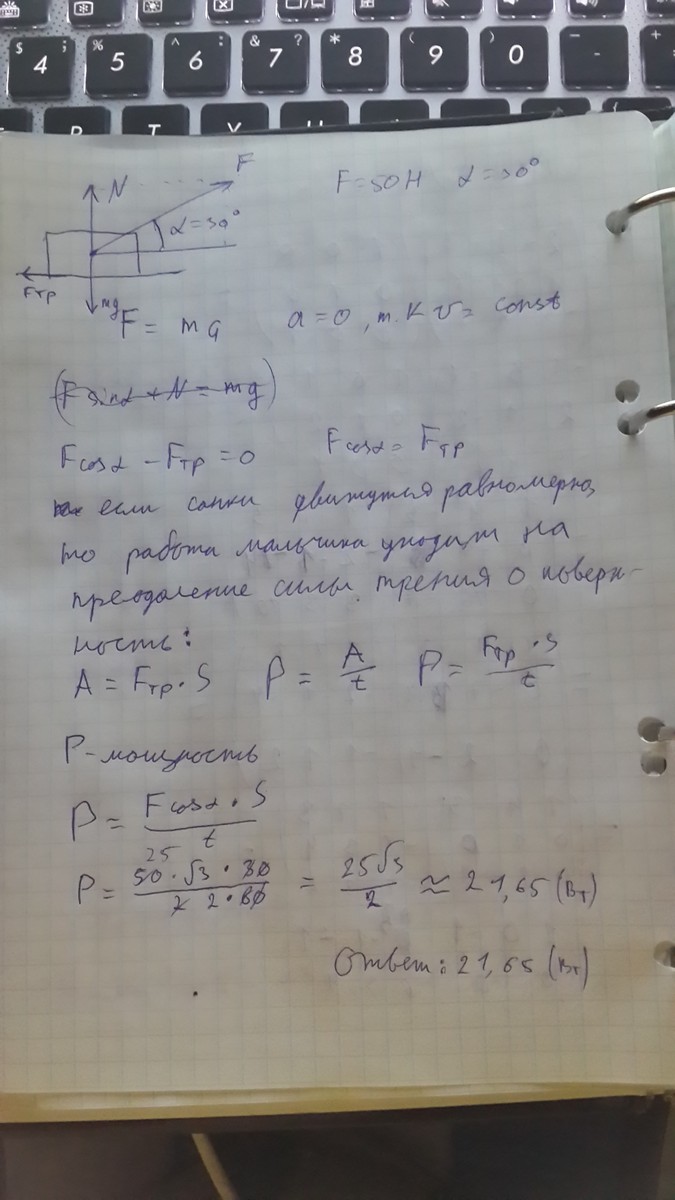 $ 4 ;
% 5
^ 6 :
& 7 ?
* 8
( 9
) 0
-
+
N
F
F=50Н α=30°
α=30°
Fтр
mg
F = ma
a=0, т.к v= const
(F sinα + N = mg)
Fcosα - Fтр =0
Fcosα= Fтр
если санки движутся равномерно,
то работа мальчика уходит на
преодоление силы трения о поверх-
ность:
A = Fтр · S
P = A/t
P = Fтр · S/t
P-мощность
P = Fcosα · S/t
25
P= 50 · √3 · 30/2 · 60 = 25√3/2 ≈ 21,65 (Вт)
Ответ: 21,65 (Вт)